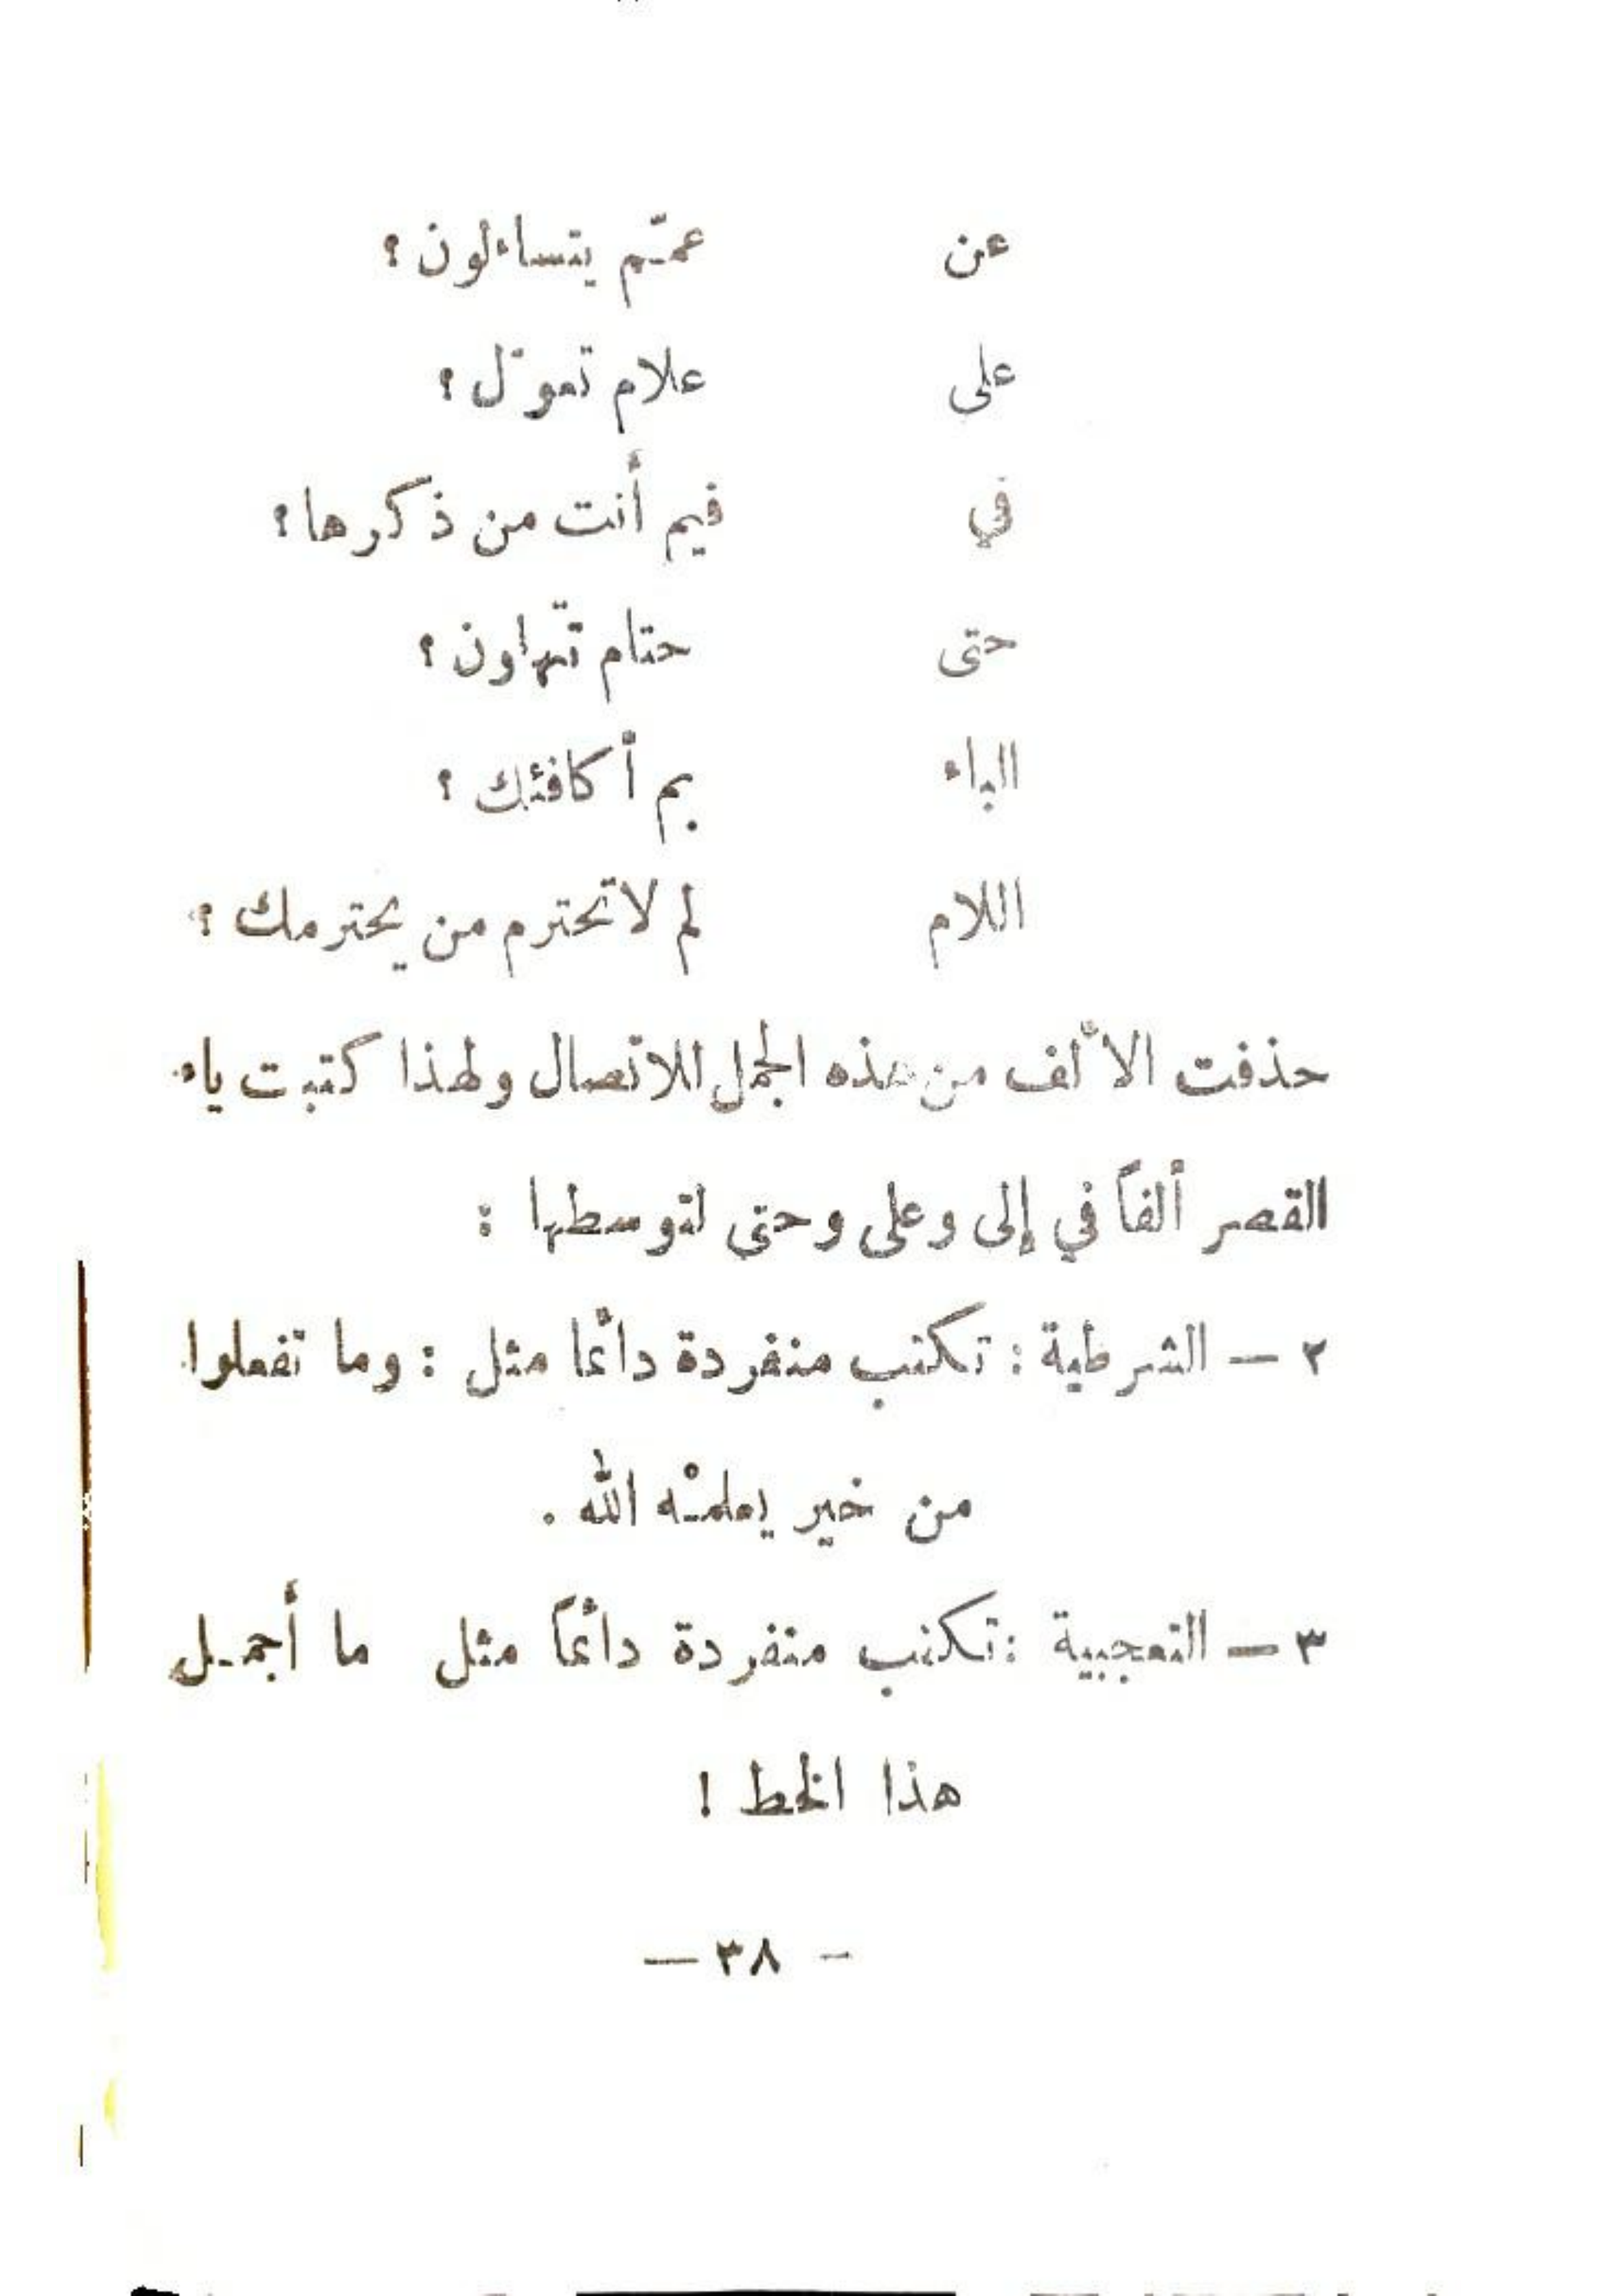 عن عمّم يتساءلون ؟
على علام تعوّل ؟
في فيم أنت من ذكرها ؟
حتى حتام تتهاون ؟
الباء بم أكافئك ؟
اللام لم لا تحترم من يحترمك ؟
حذفت الألف من هذه الجمل للاتصال ولهذا كتبت ياء
القصر ألفاً في إلى وعلى وحتى لتوسطها :
٢ — الشرطية : تكتب منفردة دائما مثل : وما تفعلوا
من خير يعلمْه الله .
٣ — التعجبية : تكتب منفردة دائماً مثل ما أجمل
هذا الخط !
— ٣٨ —